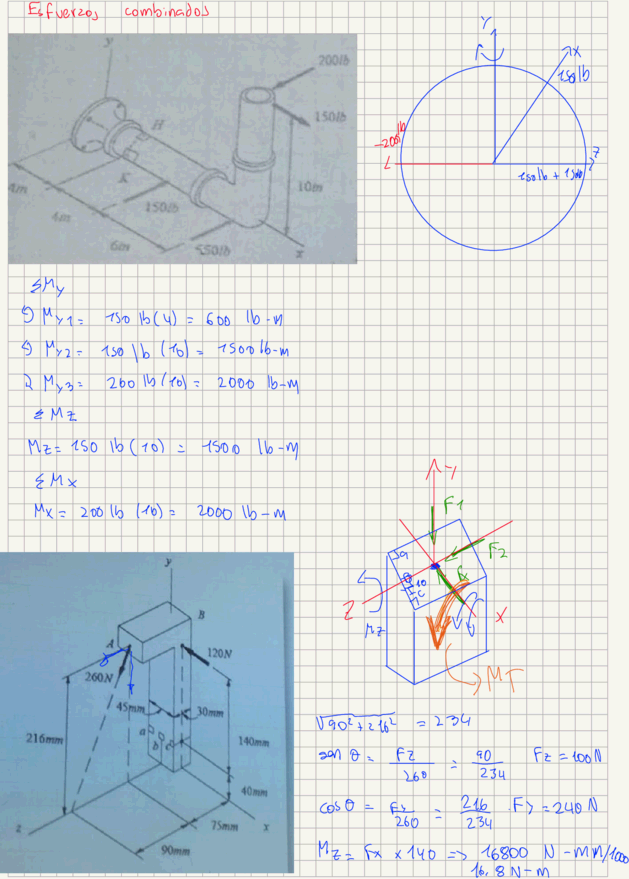 Esfuerzos combinados
y
200lb
150lb
H
K
10m
4m
4m
150lb
6m
550lb
x
Y
X
150lb
-200lb
Z
150lb + 1500
ΣMy
My1 = 150 lb(4) = 600 lb-m
My2 = 150 lb (10) = 1500 lb-m
My3 = 200 lb(10) = 2000 lb-m
ΣMz
Mz = 150 lb (10) = 1500 lb-m
ΣMx
Mx = 200 lb (10) = 2000 lb-m
Y
F1
F2
Fx
Z
X
Mz
MT
y
B
A
120N
260N
45mm
30mm
a
b
216mm
140mm
40mm
75mm
90mm
z
x
√90² + 216² = 234
sen θ = Fz/260 = 90/234 Fz = 100N
cos θ = Fy/260 = 216/234 . Fy = 240 N
Mz = Fx x 140 => 16800 N-mm/1000
16.8 N-m